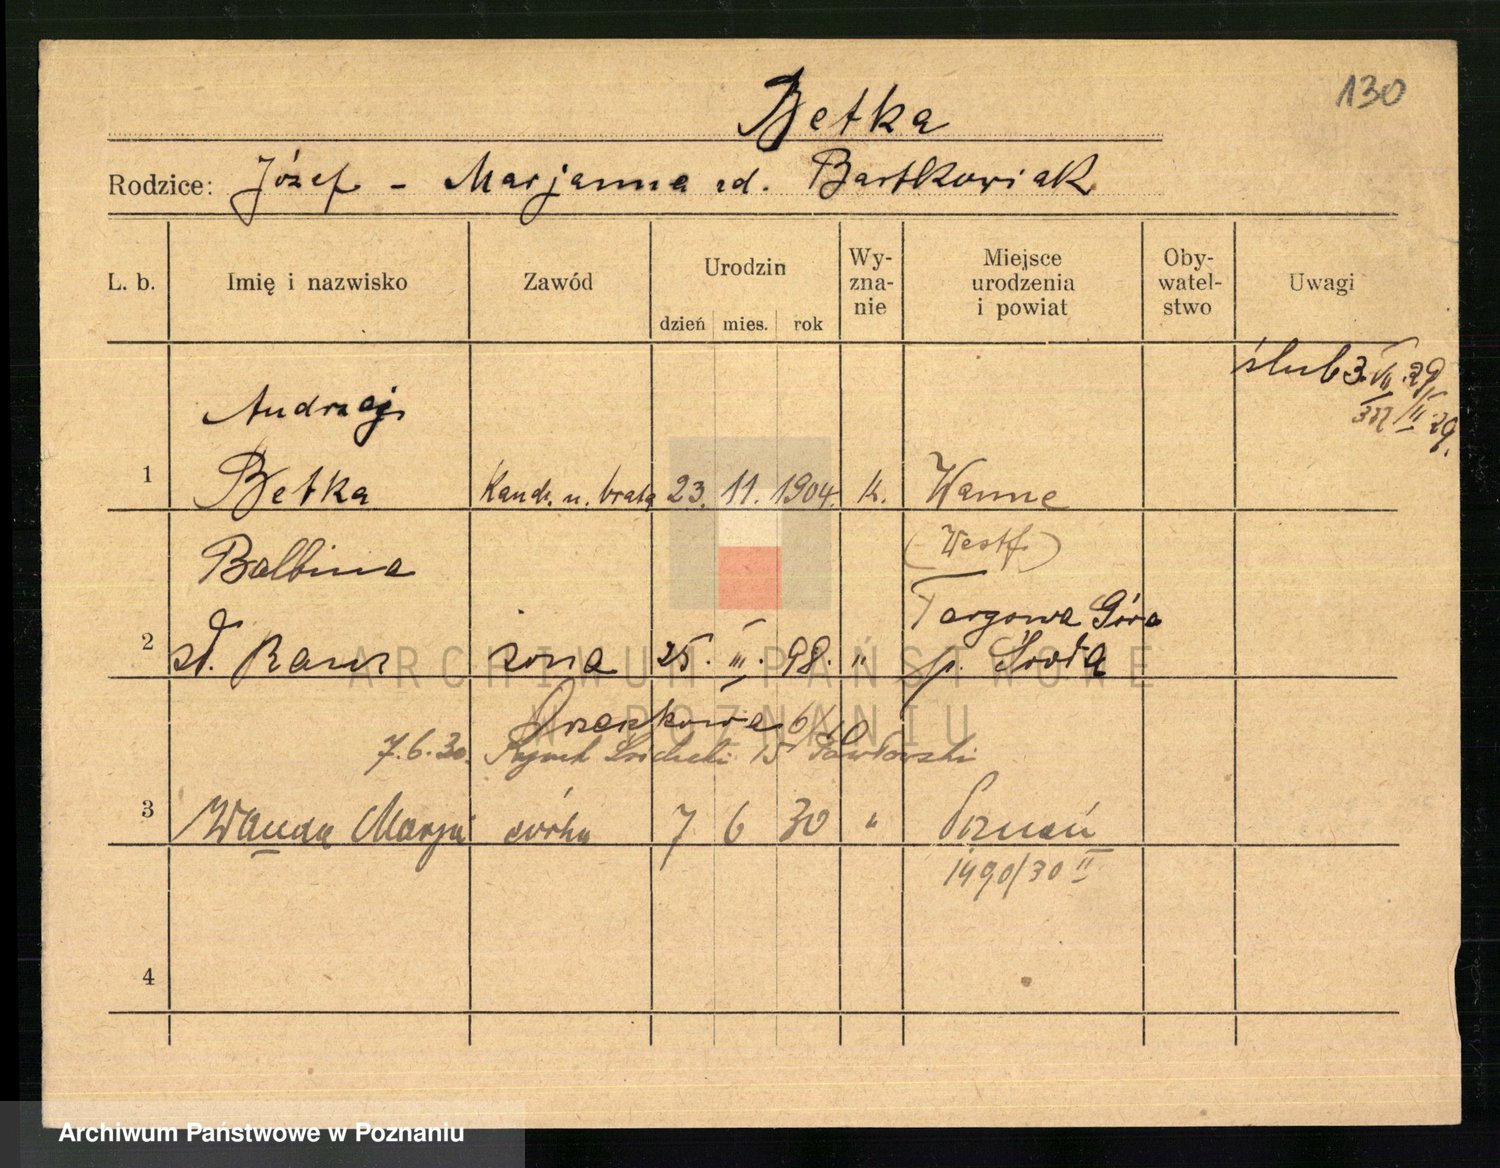 130
Betka
Rodzice: Józef - Marjanna zd. Bartkowiak
L. b. Imię i nazwisko Zawód Urodzin dzień mies. rok Wy-zna-nie Miejsce urodzenia i powiat Oby-watel-stwo Uwagi
ślub 3. VII. 29
III. 29.
Andrzej
1 Betka u brata 23. 11. 1904. k. Wanne
(Westf.)
Balbina
Targowa Góra
2 żona 25. III. 98. " p. Środa
6/10
7.6.30. Rynek Śródecki 15 Pawłowski
3 Wanda Marja córka 7 6 30 " Poznań
1490/30 II
4
ARCHIWUM PAŃSTWOWE
W POZNANIU
Archiwum Państwowe w Poznaniu